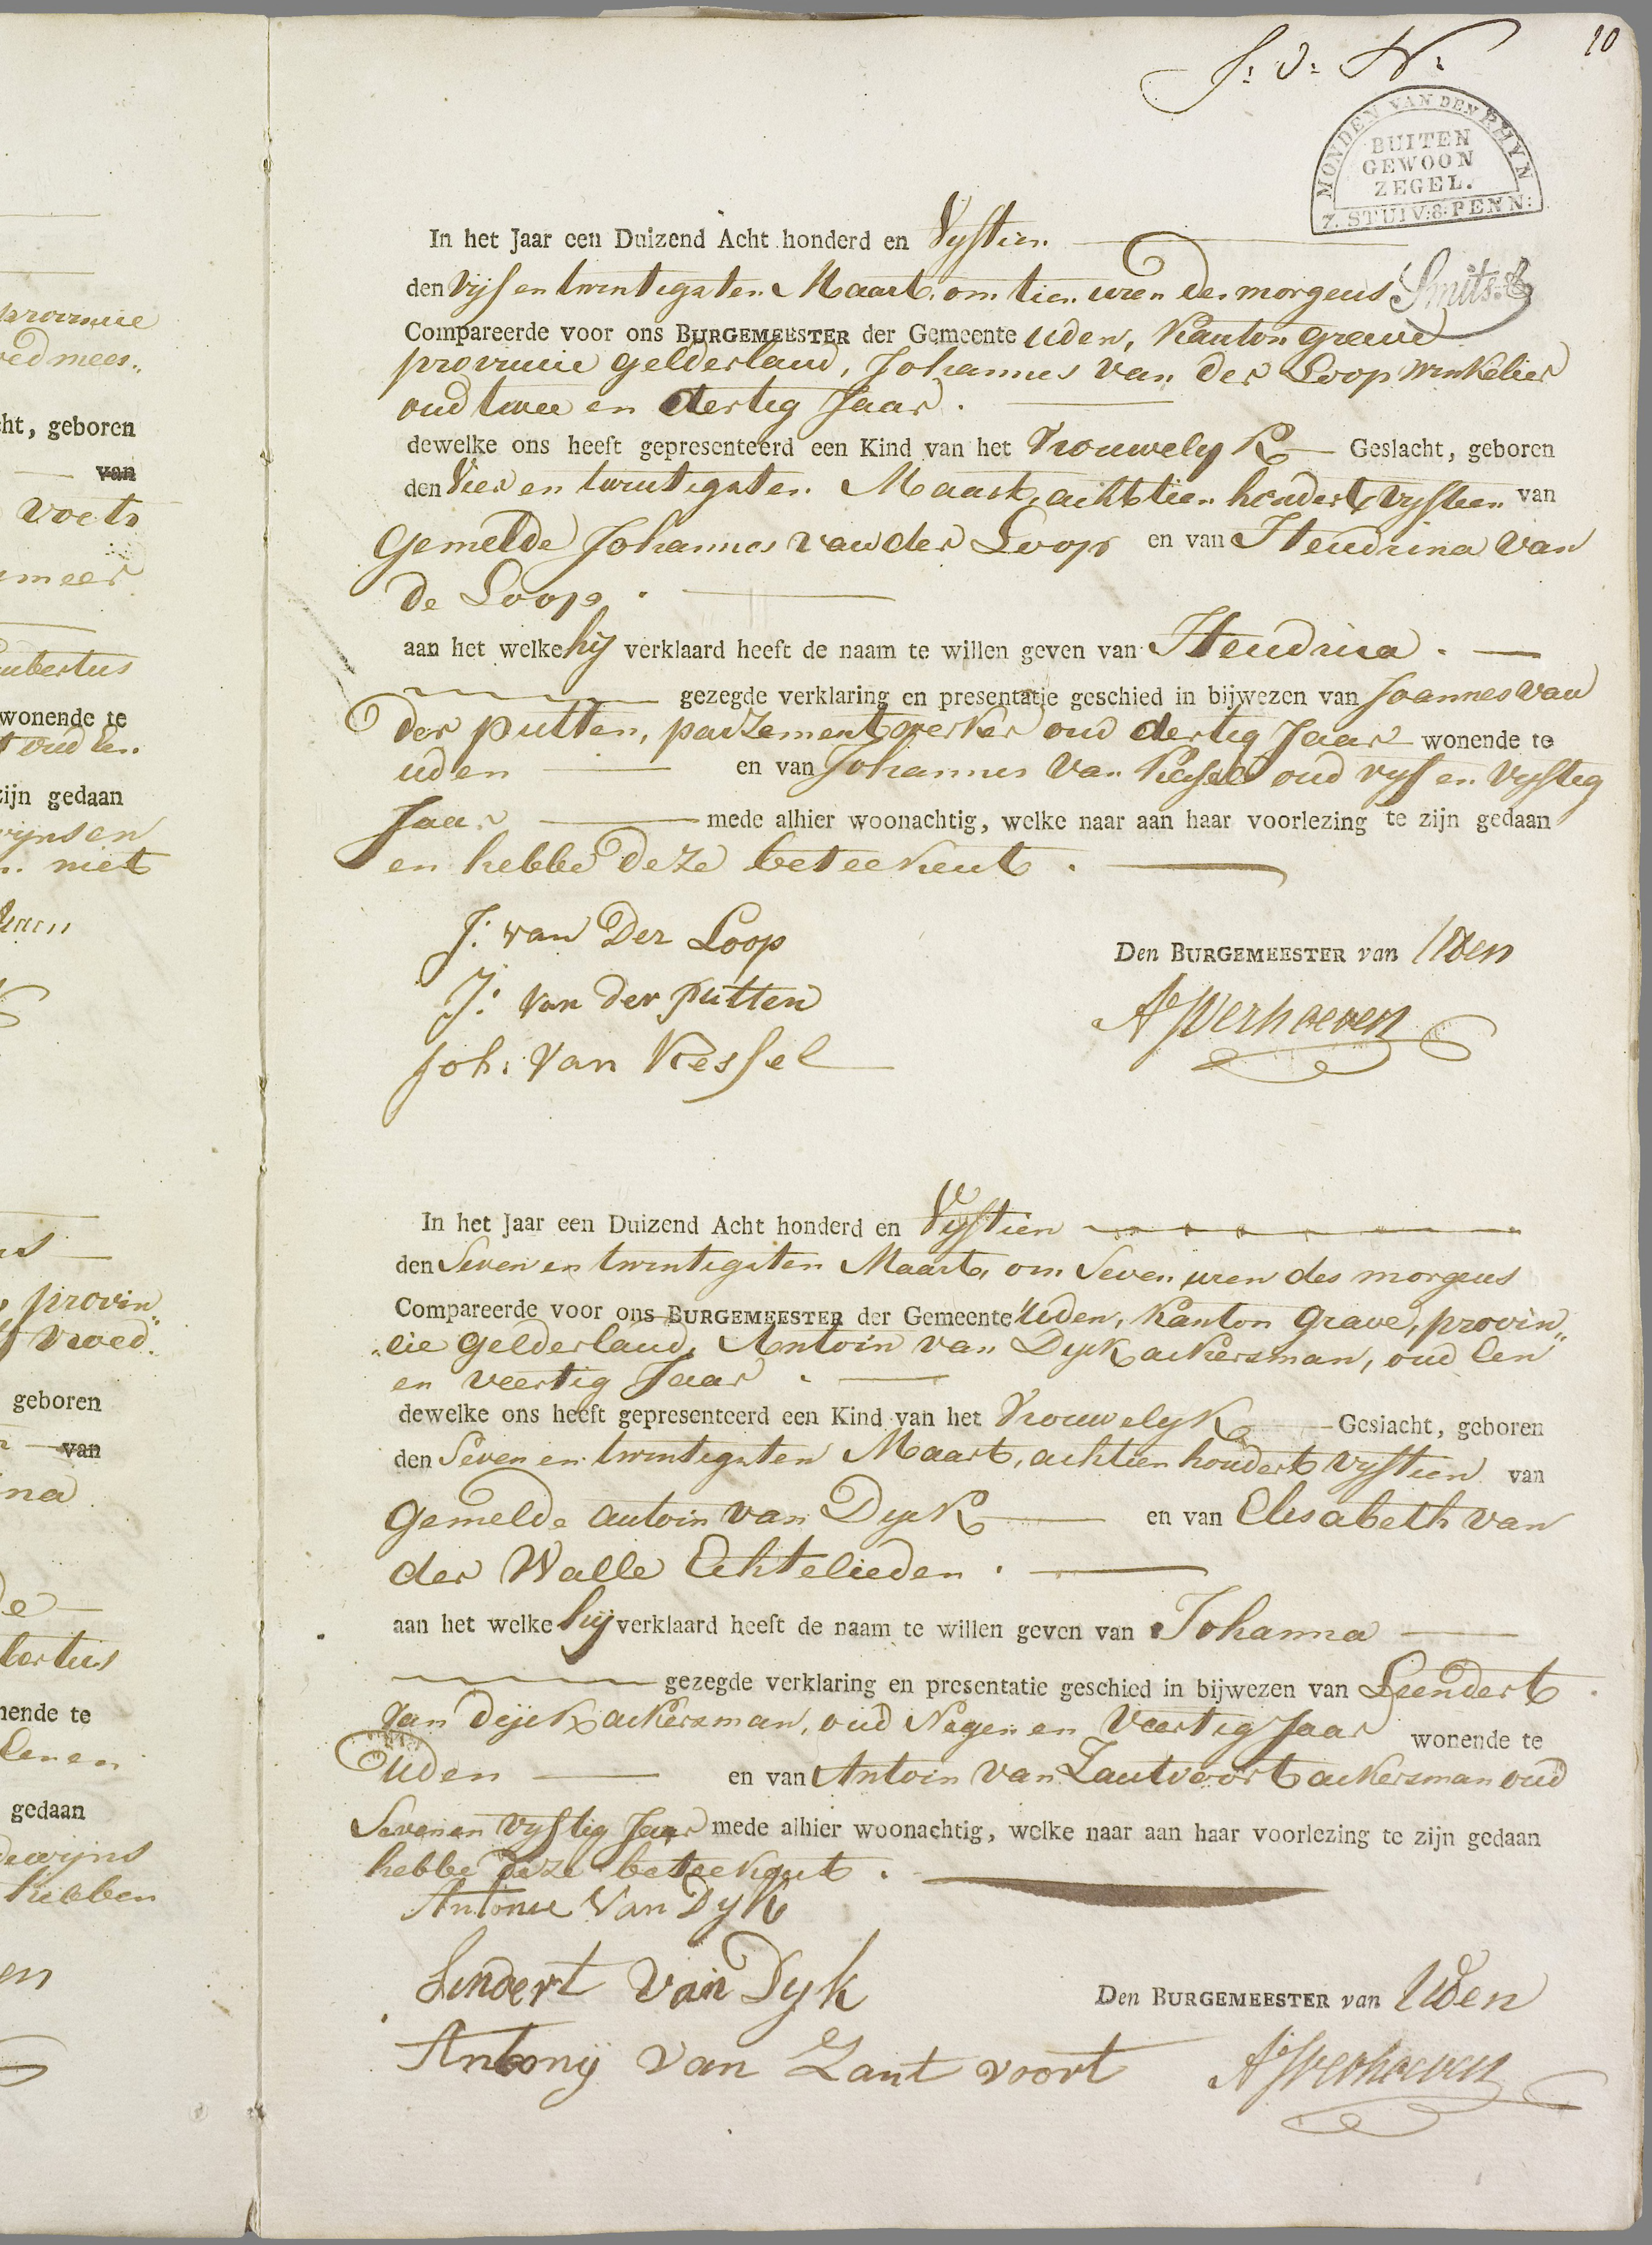 provincie
oed mees„
cht, geboren
van
voets
meer
ubertus
wonende te
t oud een
zijn gedaan
wynsen
n. niet
provin„
vroed„
geboren
van
na
de
bertus
nende te
Eenen
gedaan
dewijns
hebben
en
10
J: V: N:
MONDEN VAN DEN RHYN
BUITEN
GEWOON
ZEGEL.
7. STUIV: 8. PENN:
Smits
In het Jaar een Duizend Acht honderd en Vijftien
den Vijf en twintigsten Maart, om tien uren des morgens
Compareerde voor ons BURGEMEESTER der Gemeente Uden, Kanton Grave
provincie Gelderland, Johannes van der Loop winkelier
oud twee en dertig Jaar.
dewelke ons heeft gepresenteerd een Kind van het Vrouwelyk Geslacht, geboren
den Vier en twintigsten Maart, achttien hondert vyftien van
Gemelde Johannes van der Loop en van Hendrina van
de Loop.
aan het welke hij verklaard heeft de naam te willen geven van Hendrica.
gezegde verklaring en presentatie geschied in bijwezen van Joannes van
der putten, pazementwerker oud dertig Jaar wonende te
uden en van Johannes van Kessel oud vyf en vyftig
Jaar mede alhier woonachtig, welke naar aan haar voorlezing te zijn gedaan
en hebbe deze beteekent.
J: van Der Loop
Den BURGEMEESTER van Uden
J: van der putten
A Verhoeven
Joh: van Kessel
In het Jaar een Duizend Acht honderd en Vyftien
den Seven en twintigsten Maart, om Seven uren des morgens
Compareerde voor ons BURGEMEESTER der Gemeente Uden, Kanton Grave, provin„
„cie Gelderland, Antoin van Dyck ackersman, oud Een
en veertig Jaar.
dewelke ons heeft gepresenteerd een Kind van het Vrouwelyk Geslacht, geboren
den Seven en twintigsten Maart, achtien hondert vyftien van
Gemelde Antoin van Dyck en van Elisabeth van
der Walle Echtelieden.
aan het welke hij verklaard heeft de naam te willen geven van Johanna
gezegde verklaring en presentatie geschied in bijwezen van Leendert
van Dijck ackersman, oud Negen en Veertig Jaar wonende te
Uden en van Antoin van Zantvoort ackersman oud
Seven en vyftig Jaar mede alhier woonachtig, welke naar aan haar voorlezing te zijn gedaan
hebbe deze beteekent.
Antonie Van Dyk
Lendert van Dyk
Den BURGEMEESTER van Uden
Antonij van Zant voort
A Verhoeven